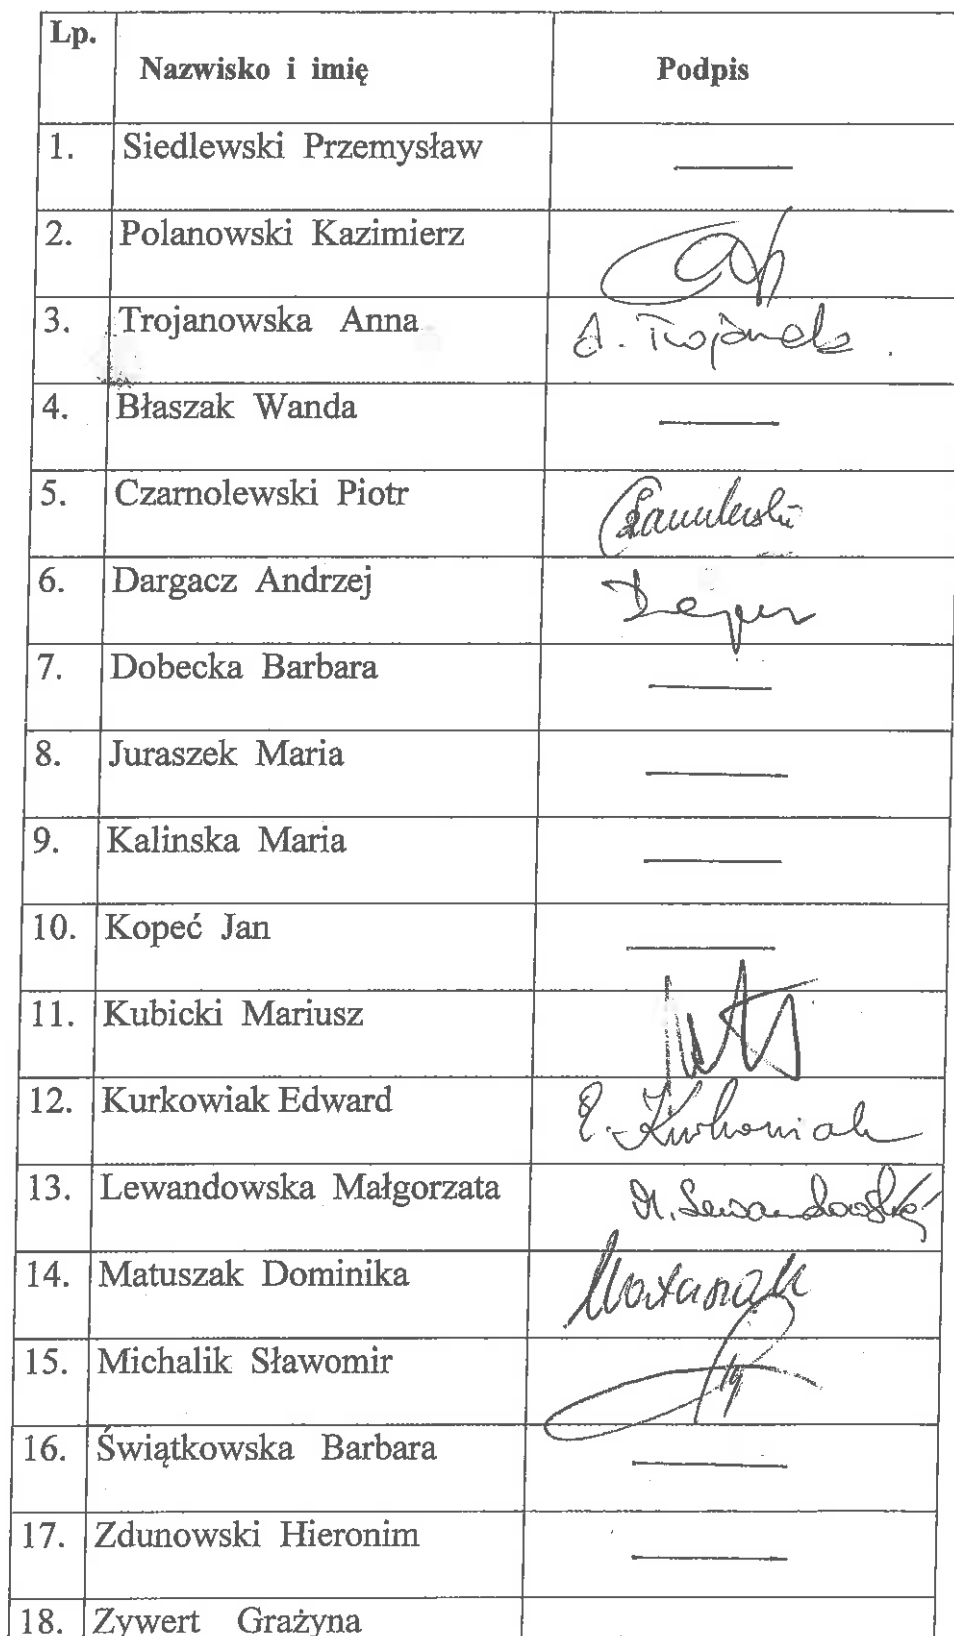 Lp. Nazwisko i imię Podpis
1. Siedlewski Przemysław
2. Polanowski Kazimierz
3. Trojanowska Anna
4. Błaszak Wanda
5. Czarnolewski Piotr
6. Dargacz Andrzej
7. Dobecka Barbara
8. Juraszek Maria
9. Kalinska Maria
10. Kopeć Jan
11. Kubicki Mariusz
12. Kurkowiak Edward E. Kurkowiak
13. Lewandowska Małgorzata M. Lewandowska
14. Matuszak Dominika Matuszak
15. Michalik Sławomir
16. Świątkowska Barbara
17. Zdunowski Hieronim
18. Zywert Grażyna